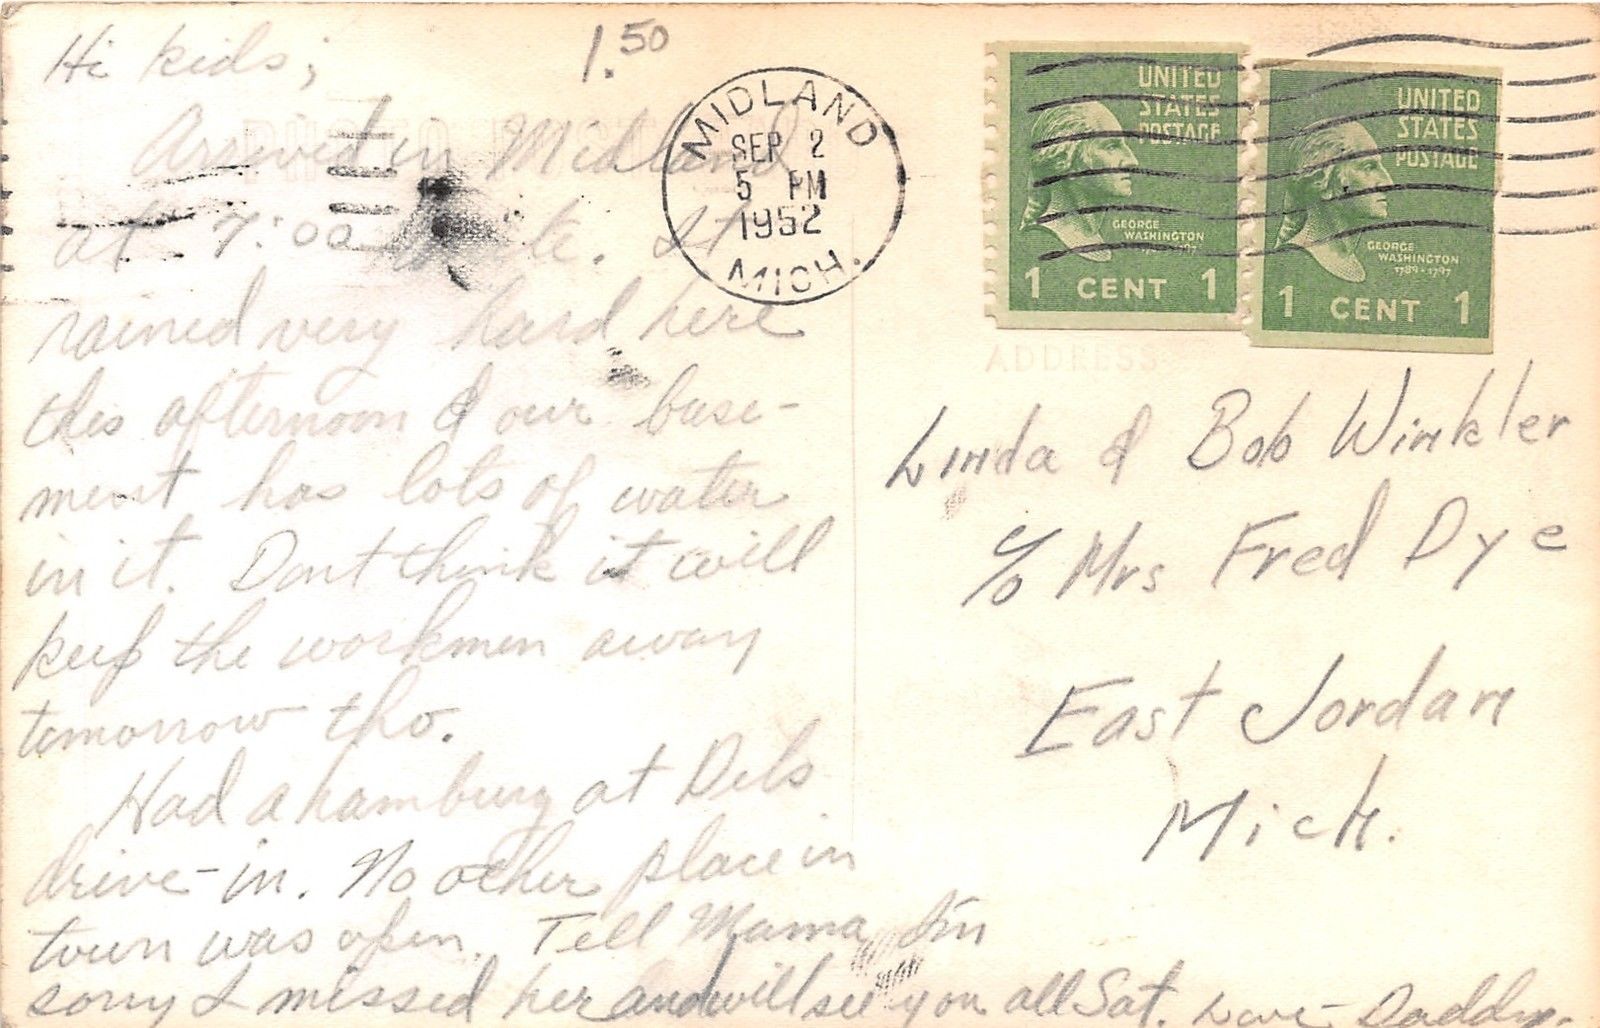 Hi kids;
1.50
Arrived in Midland
at 7:00 . It
rained very hard here
this afternoon & our base-
ment has lots of water
in it. Dont think it will
keep the workmen away
tomorrow tho.
Had a hamburg at Dels
drive-in. No other place in
town was open. Tell Mama I'm
sorry I missed her and will see you all Sat. Love - Daddy.
PHOTO POST
MIDLAND
SEP 2
5 PM
1952
MICH.
UNITED
STATES
POSTAGE
GEORGE
WASHINGTON
1789-1797
1 CENT 1
UNITED
STATES
POSTAGE
GEORGE
WASHINGTON
1789-1797
1 CENT 1
ADDRESS
Linda & Bob Winkler
c/o Mrs Fred Dye
East Jordan
Mich.